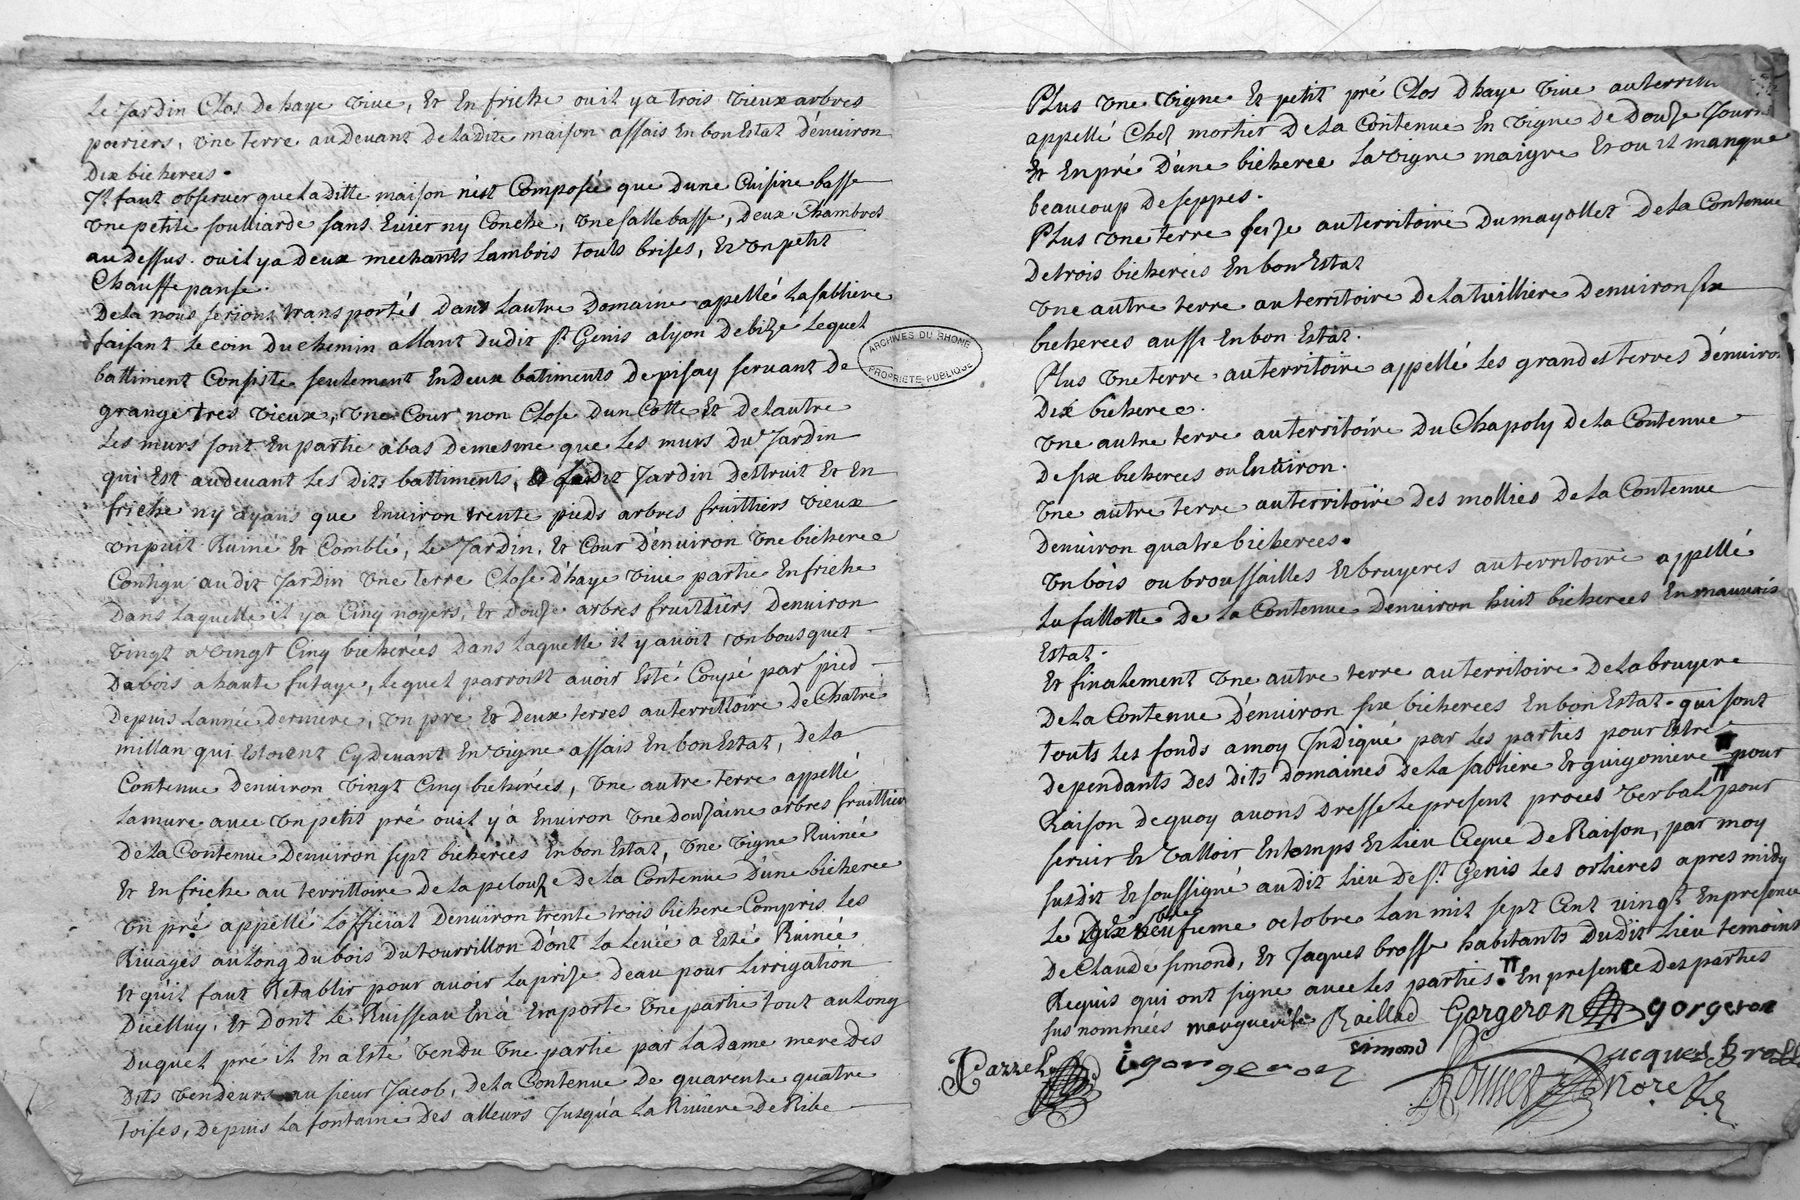 Le Jardin Clos de haye vive, Et En friche ou il y a trois vieux arbres
poeriers, une terre au devant de la dite maison assais En bon Estat d'environ
Dix bicherees.
Il faut observer que la ditte maison n'est Composée que dune Cuisine basse
une petite soulliarde sans Evier ny Conche, une salle basse, deux Chambres
au dessus. ou il y a deux mechants Lambris touts brises, Et un petit
Chauffe panse.
De la nous serions transportés Dans Lautre Domaine apellé La sabliere
faisant Le coin Du chemin allant dudit st Genis a lyon de bize Lequel
battiment Consiste seulement En deux batiments De pisay servant de
grange tres vieux, une Cour non Close dun Cotté Et de lautre
Les murs sont En partie a bas de mesme que Les murs Du Jardin
qui Est au devant Les dits battiments, Le dit Jardin destruit Et En
friche ny ayans que Environ trente pieds arbres fruittiers vieux
un puit Ruiné Et Comblé, Le Jardin, Et Cour d'environ une bicheree
Contigu au dit Jardin une terre Close d'haye vive partie En friche
Dans Laquelle il y a Cinq noyers, Et douze arbres fruittiers Denviron
vingt a vingt Cinq bicherées dans Laquelle il y avoit un bousquet
De bois a haute futaye, Lequel parroist avoir Esté Coupé par pied
Depuis Lannée derniere, un pré Et Deux terres au territtoire de Chatre
millan qui Estoient Cy devant En vigne assais En bon Estat, de la
Contenue Denviron vingt Cinq bicherées, une autre terre appellé
La mure avec un petit pré ou il y à Environ une douzaine arbres fruittier
De la Contenue Denviron sept bicherées En bon Estat, une vigne Ruinée
Et En friche au territtoire de la pelouze de la Contenue D'une bicheree
un pré appellé L'official Denviron trente trois bichere Compris Les
Rivages au Long du bois du tourrillon dont La Levée a Esté Ruinée
Et quil faut Retablir pour avoir La prize d'eau pour Lirrigation
Dicelluy, Et dont Le Ruisseau En à Emporté une partie tout au Long
Duquel pré il En a Esté vendu une partie par La dame mere des
Dits vendeurs au sieur Jacob, de la Contenue de quarente quatre
toises, depuis La fontaine des alleurs Jusqu'a La Riviere de Ribe
Plus une vigne Et petit pré Clos d'haye vive au
appellé Chez mortier de la Contenue En vigne de Douze
Et En pré D'une bicheree La vigne maigre Et ou il manque
beaucoup de seppes.
Plus une terre size au territoire Du mayollet de la Contenue
De trois bicherées En bon Estat
une autre terre au territoire de la tuilliere denviron six
bicherees aussi En bon Estat.
Plus une terre au territoire appellé Les grandes terres d'environ
Dix bicheree.
une autre terre au territoire du Chapoly de la Contenue
De six bicherees ou Environ.
une autre terre au territoire des mollies de la Contenue
Denviron quatre bicherees.
un bois ou broussailles Et bruyeres au territoire appellé
La fallotte de La Contenue denviron huit bicherees En mauvais
Estat.
Et finalement une autre terre au territoire de la bruyere
De la Contenue d'environ six bicherees En bon Estat - qui sont
touts Les fonds a moy Indiqué par Les parties pour Estre
dependants des dits domaines de La sabliere Et guigoniere pour
Raison de quoy avons dressé Le present proces verbal pour
servir Et valloir En temps Et Lieu Ce que de Raison, par moy
susdit Et soussigné au dit Lieu de st Genis Les ollieres apres midy
Le dix neufieme octobre Lan mil sept Cent vingt En presence
De Claude simond, Et Jaques brosse habitants Du dit Lieu temoins
Requis qui ont signe avec Les parties. En presence des parties
sus nommées marguerite Raillad Gorgeron gorgeron
simond
gorgeron